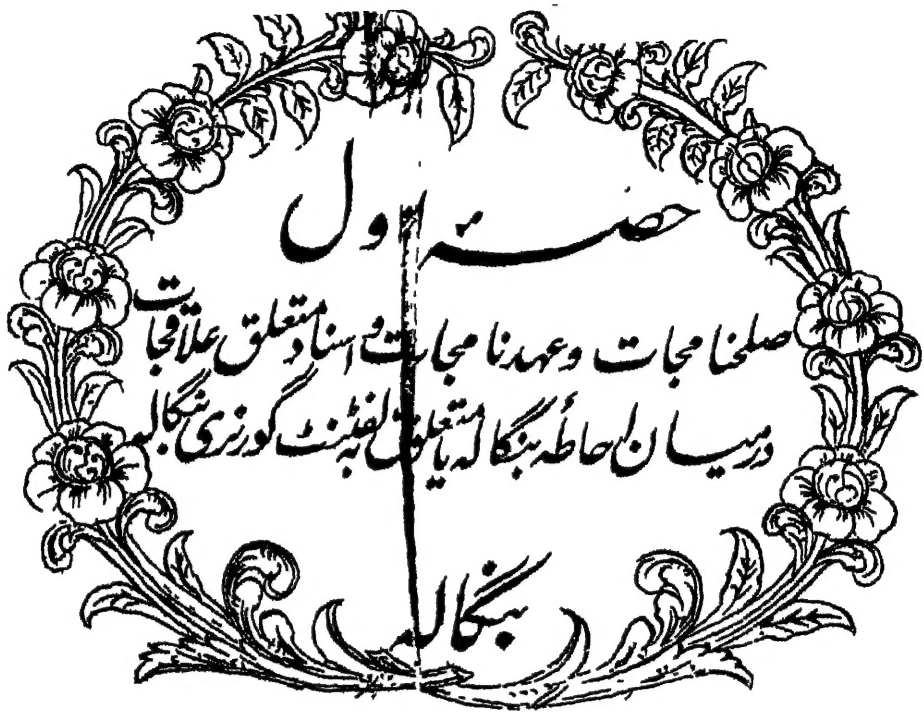 حصہ اول
صلحنامجات و عہدنامجات و اسناد متعلق علاقجات
درمیان احاطہٴ بنگالہ یا متعلق بہ لفٹنٹ گورنری بنگالہ
بنگالہ